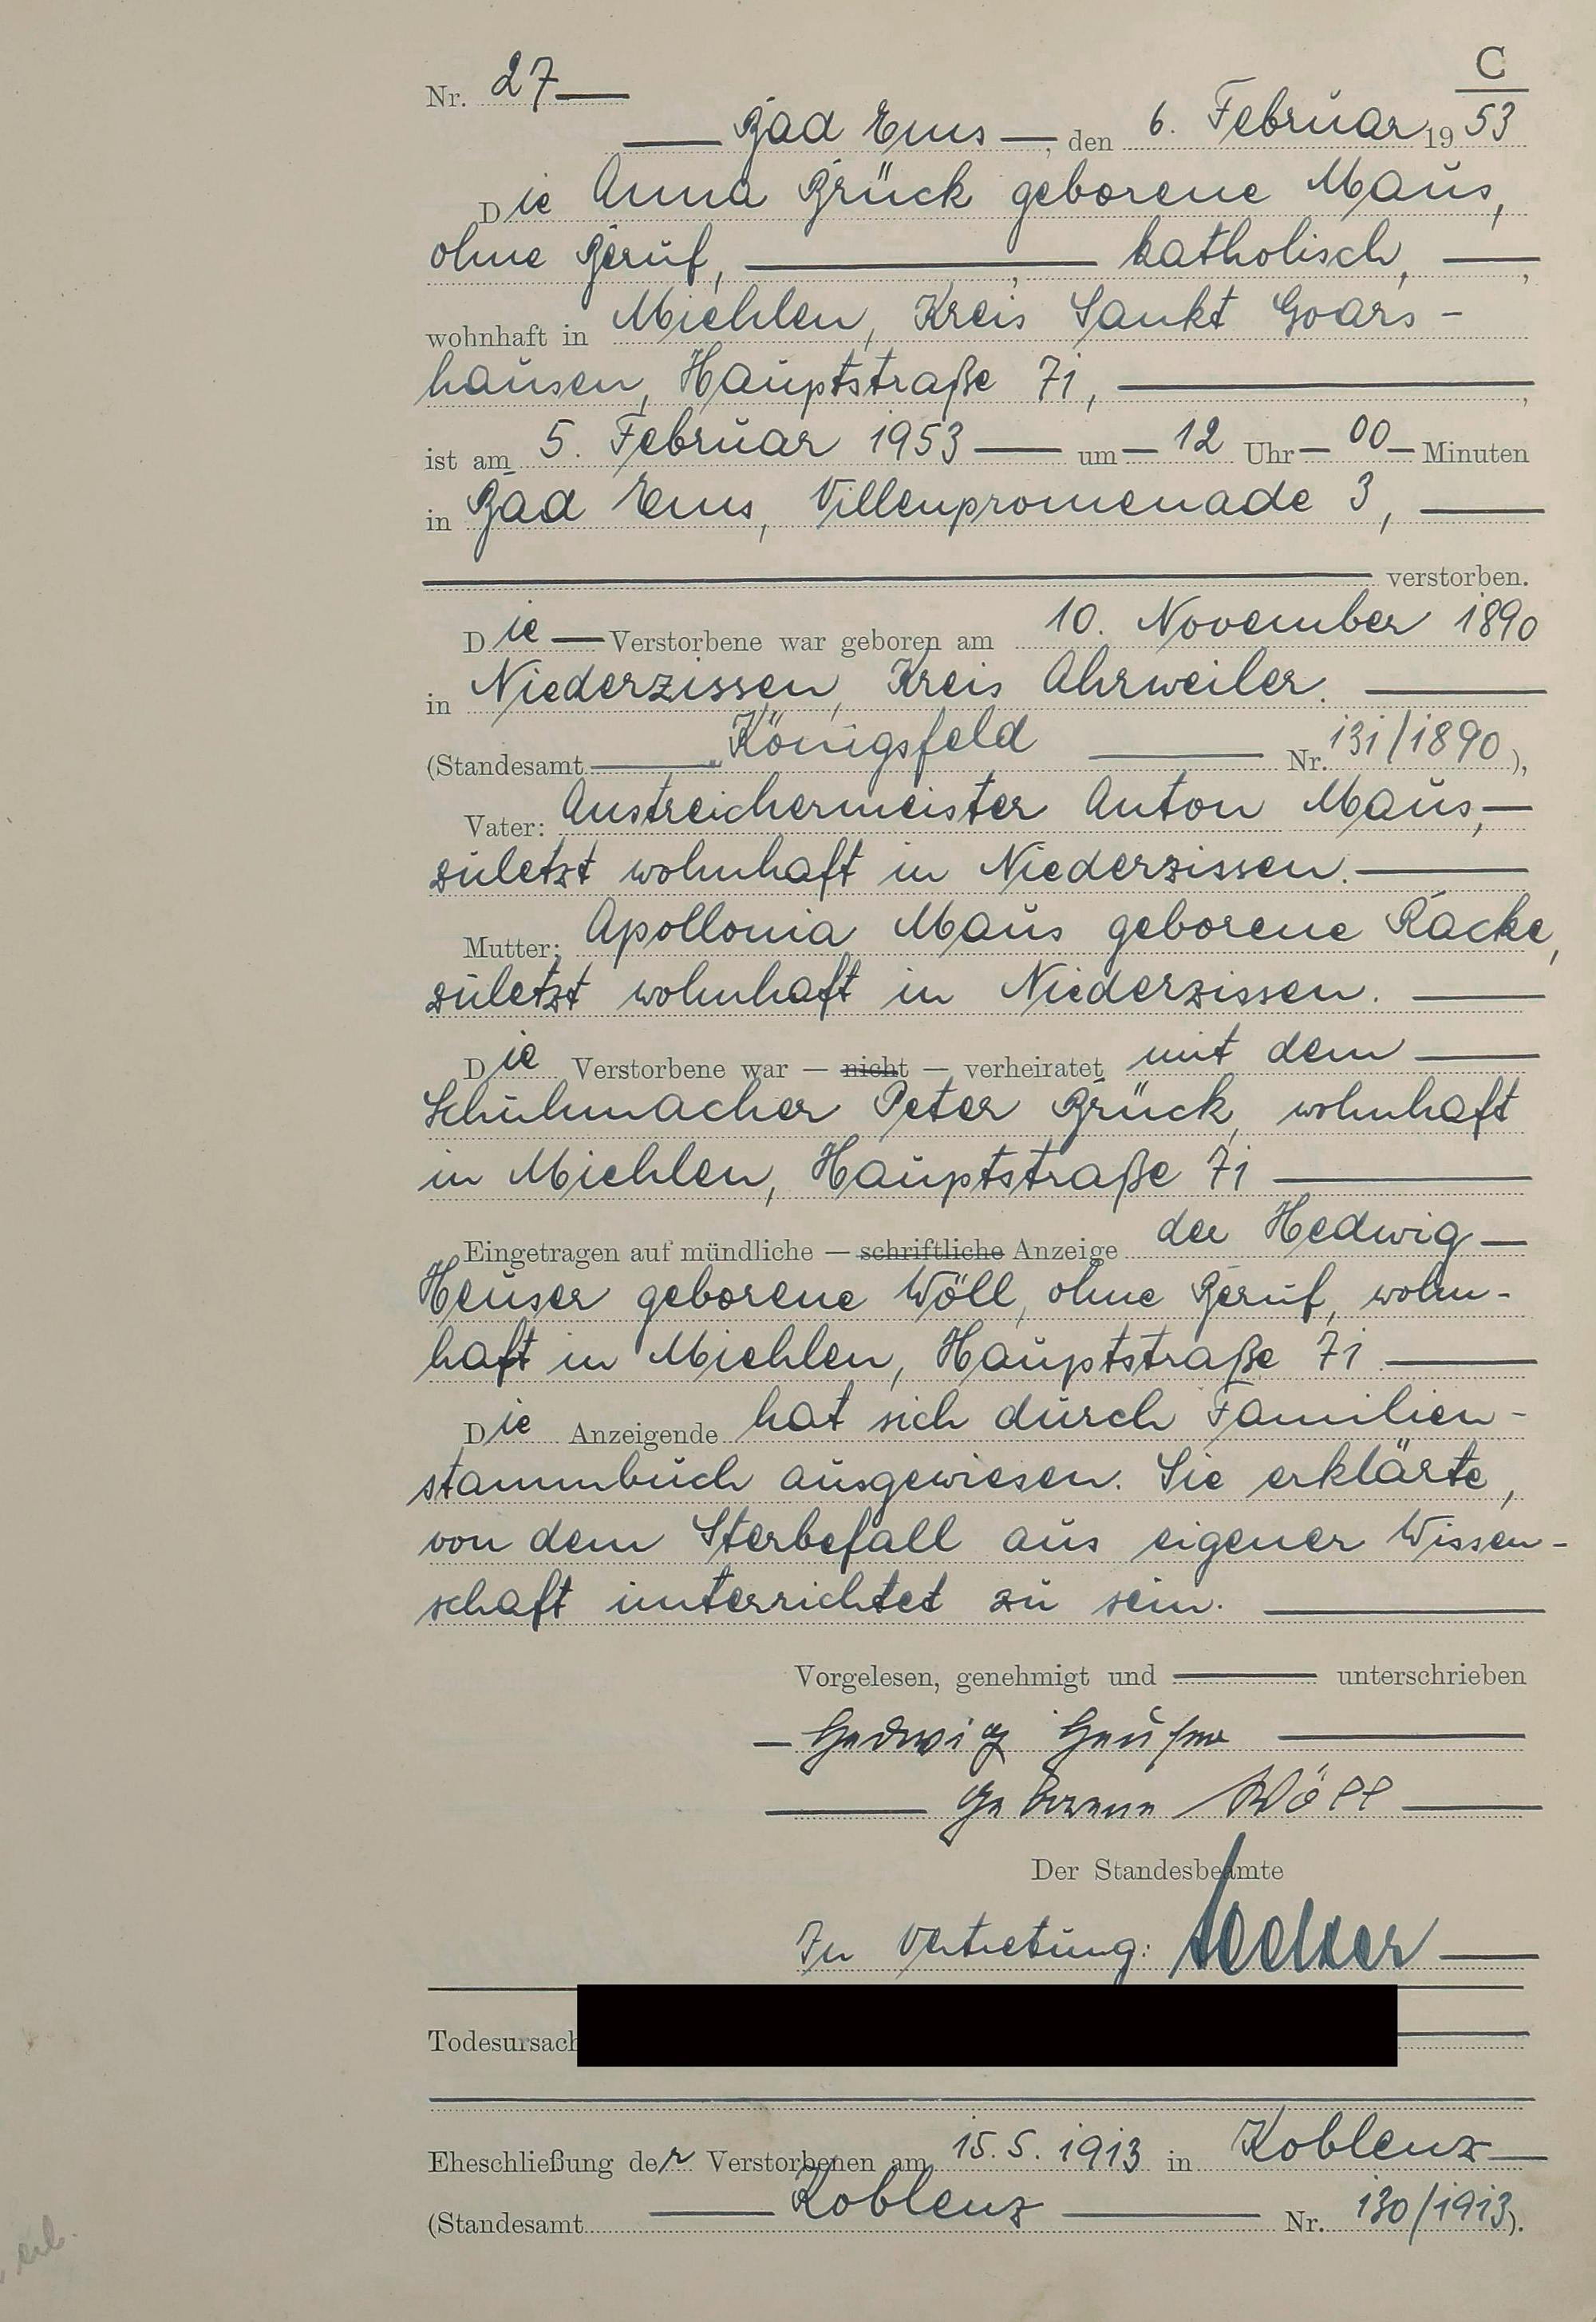 C
Nr. 27
Bad Ems, den 6. Februar 1953
Die Anna Brück geborene Maus,
ohne Beruf, , katholisch, ,
wohnhaft in Miehlen, Kreis Sankt Goars-
hausen, Hauptstraße 71, ,
ist am 5. Februar 1953 um 12 Uhr 00 Minuten
in Bad Ems, Villenpromenade 3,
verstorben.
Die Verstorbene war geboren am 10. November 1890
in Niederzissen, Kreis Ahrweiler.
(Standesamt Königsfeld Nr. 131/1890),
Vater: Anstreichermeister Anton Maus,
zuletzt wohnhaft in Niederzissen.
Mutter: Apollonia Maus geborene Racke,
zuletzt wohnhaft in Niederzissen.
Die Verstorbene war — nicht — verheiratet mit dem
Schuhmacher Peter Brück, wohnhaft
in Miehlen, Hauptstraße 71
Eingetragen auf mündliche — schriftliche Anzeige der Hedwig
Heuser geborene Wöll, ohne Beruf, wohn-
haft in Miehlen, Hauptstraße 71
Die Anzeigende hat sich durch Familien-
stammbuch ausgewiesen. Sie erklärte,
von dem Sterbefall aus eigener Wissen-
schaft unterrichtet zu sein.
Vorgelesen, genehmigt und unterschrieben
Hedwig Heuser
geborene Wöll
Der Standesbeamte
In Vertretung:
Todesursach
Eheschließung der Verstorbenen am 15.5.1913 in Koblenz
(Standesamt Koblenz Nr. 130/1913).